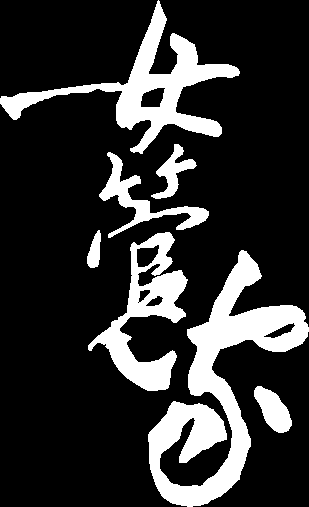 女管家